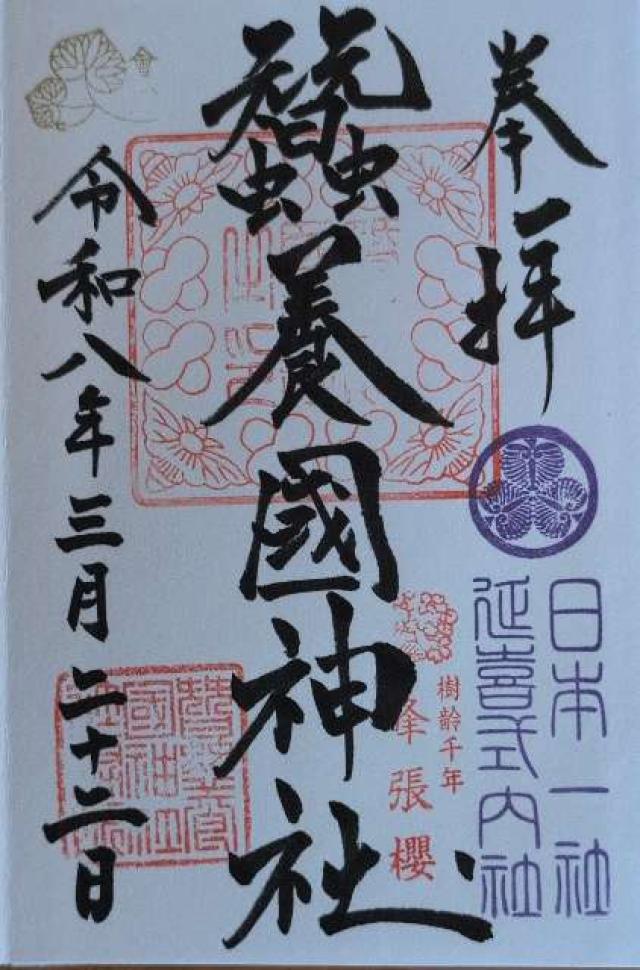 奉拝
日本一社
延喜式内社
樹齢千年
峰張櫻
蠶養國神社
令和八年三月二十二日